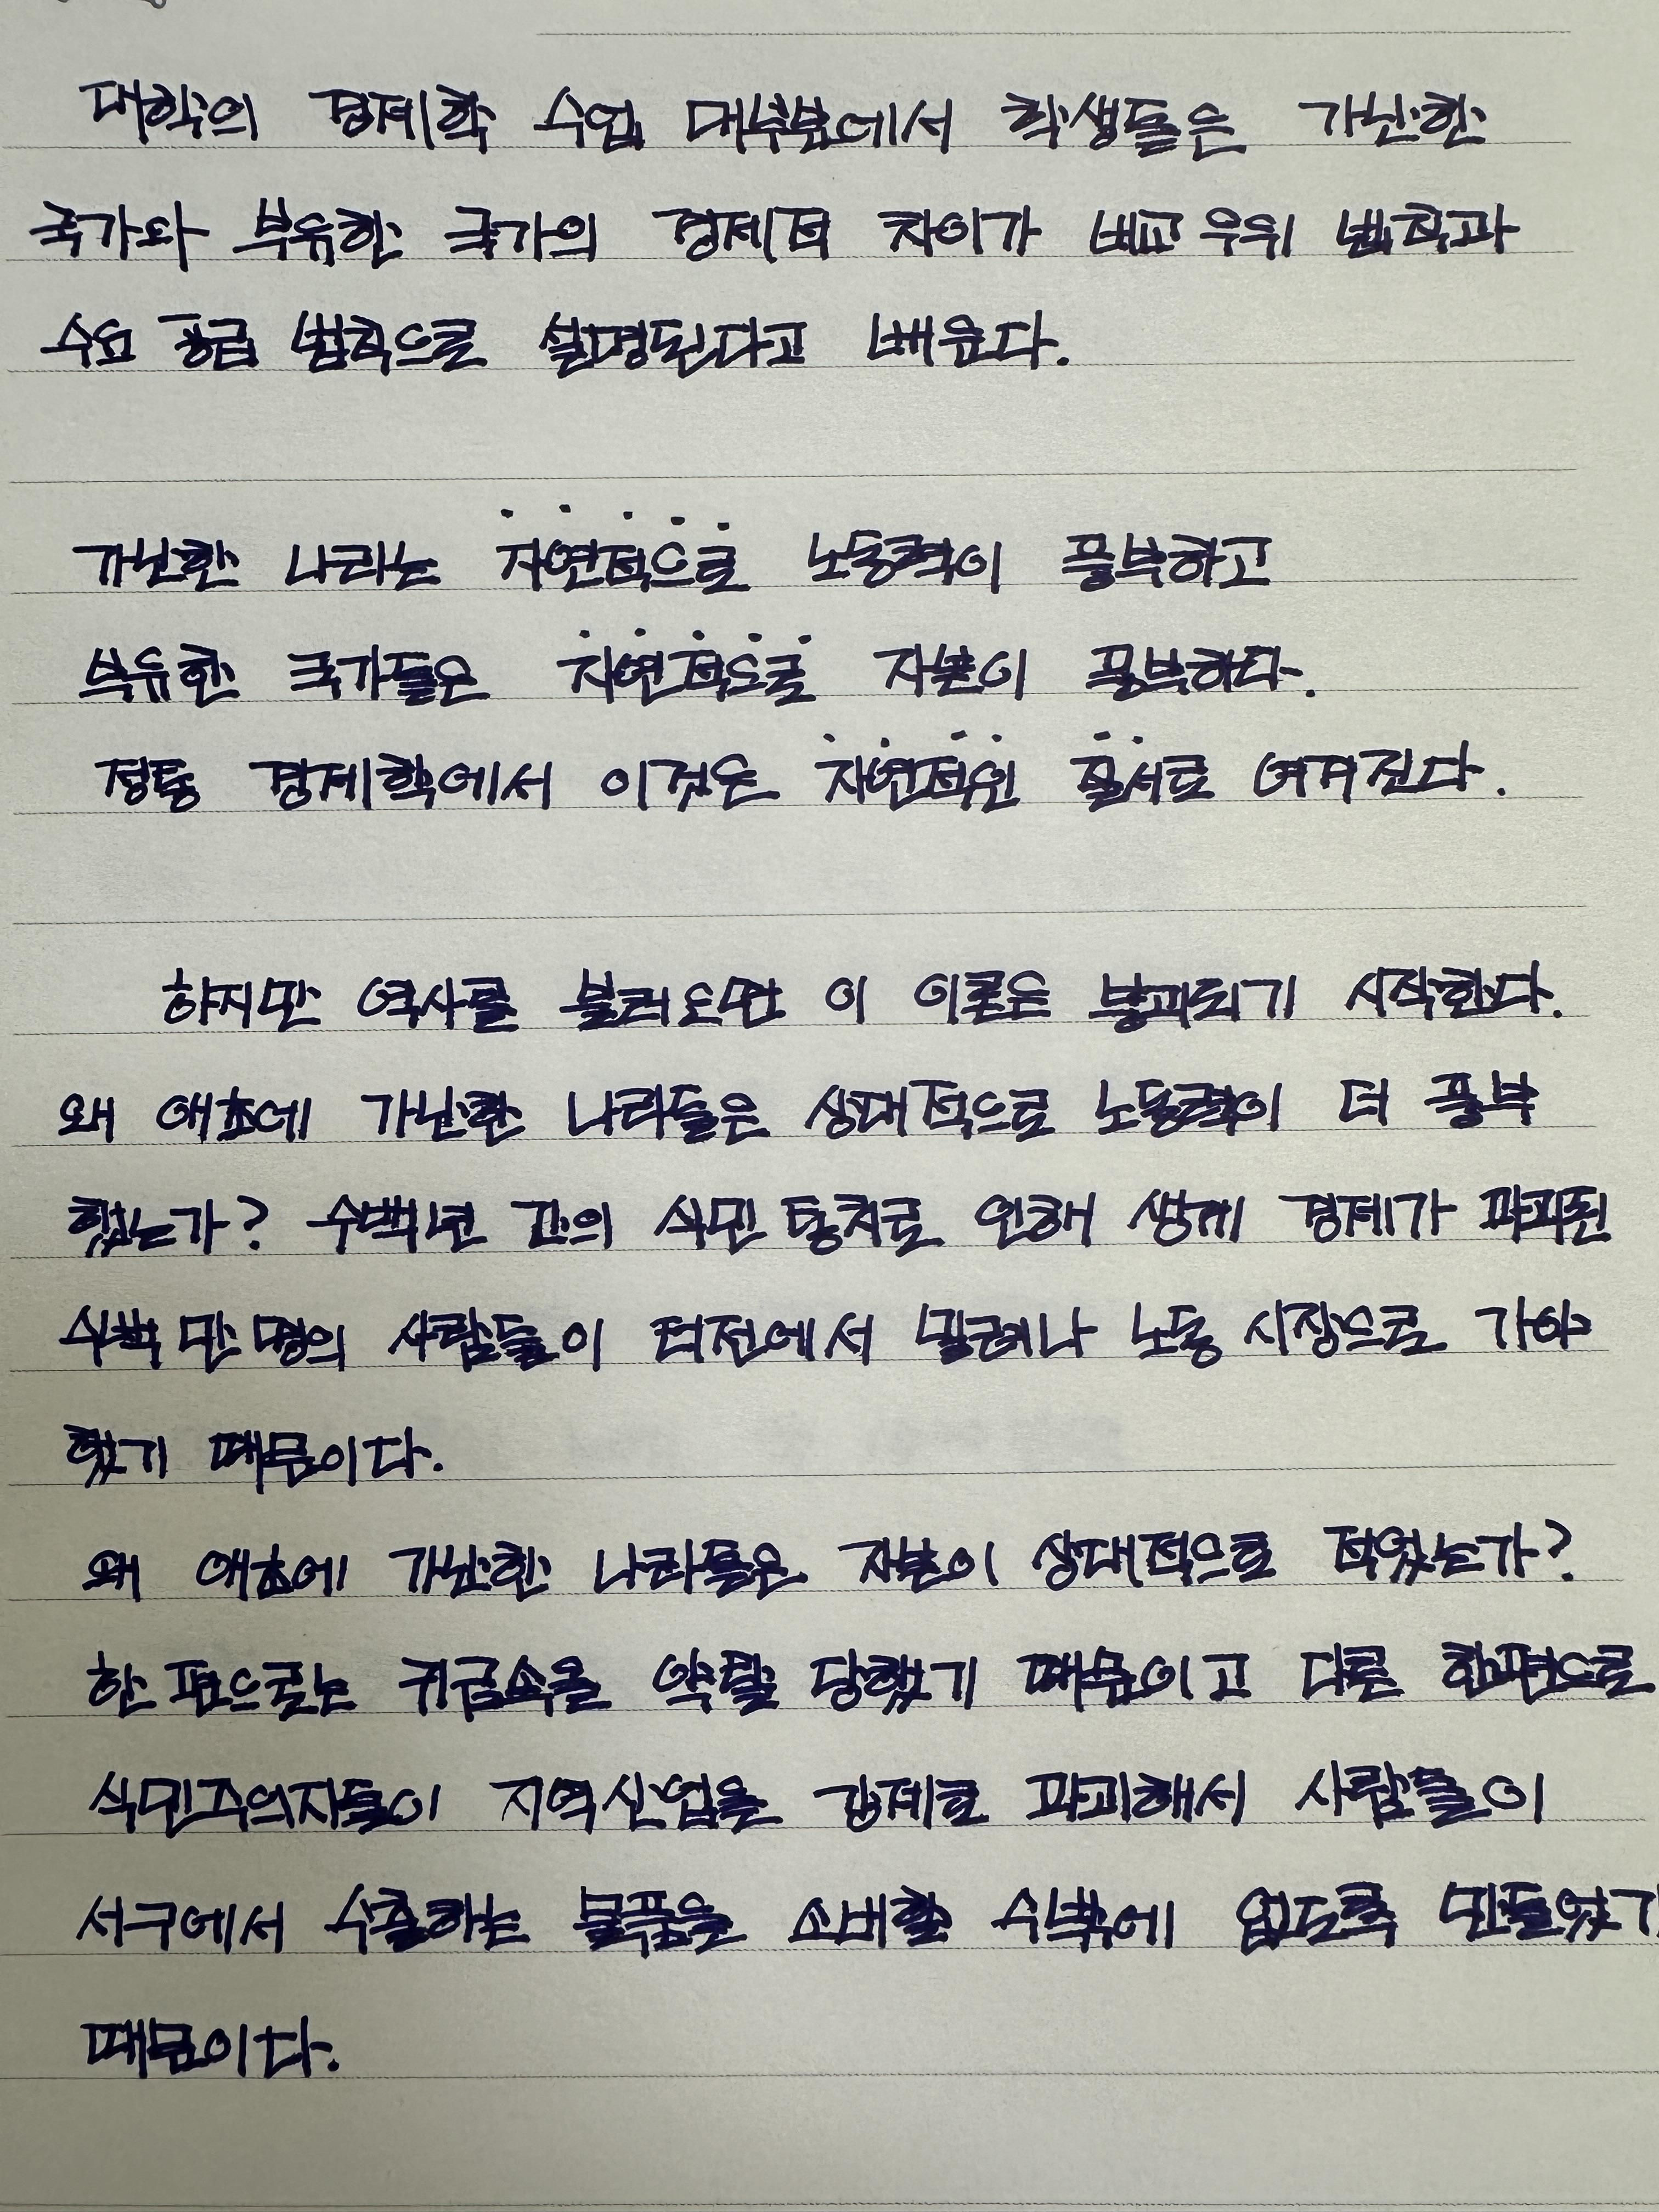 대학의 경제학 수업 대부분에서 학생들은 가난한
국가와 부유한 국가의 경제적 차이가 비교 우위 법칙과
수요 공급 법칙으로 설명된다고 배운다.
가난한 나라는 자연적으로 노동력이 풍부하고
부유한 국가들은 자연적으로 자본이 풍부하다.
정통 경제학에서 이것은 자연적인 질서로 여겨진다.
하지만 역사를 불러오면 이 이론은 붕괴되기 시작한다.
왜 애초에 가난한 나라들은 상대적으로 노동력이 더 풍부
했는가? 수백년 간의 식민 통치로 인해 생계 경제가 파괴된
수백 만 명의 사람들이 터전에서 밀려나 노동 시장으로 가야
했기 때문이다.
왜 애초에 가난한 나라들은 자본이 상대적으로 적었는가?
한 편으로는 귀금속을 약탈 당했기 때문이고 다른 한편으로
식민주의자들이 지역 산업을 강제로 파괴해서 사람들이
서구에서 수출하는 물품을 소비할 수밖에 없도록 만들었기
때문이다.